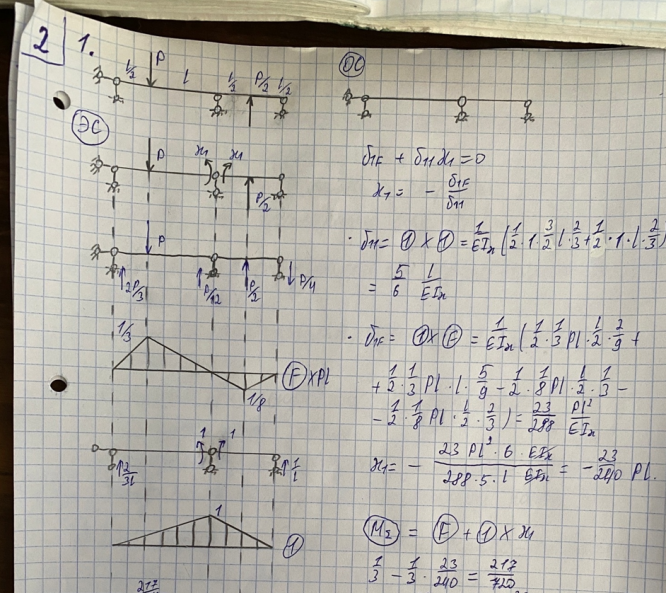 2 1.
l/2 P l l/2 P/2 l/2
ОС
ЭС
P x₁ x₁ P/2
δ₁F + δ₁₁x₁ = 0
x₁ = - δ₁F/δ₁₁
· δ₁₁ = ① × ① = 1/EIₓ (1/2 · 1 · 3/2 l · 2/3 + 1/2 · 1 · l · 2/3)
= 5/6 l/EIₓ
P
2P/3 P/12 P/2 P/4
· δ₁F = ① × Ⓕ = 1/EIₓ (1/2 · 1/3 Pl · l/2 · 2/9 +
+ 1/2 · 1/3 Pl · l · 5/9 - 1/2 · 1/8 Pl · l/2 · 1/3 -
- 1/2 · 1/8 Pl · l/2 · 2/3) = 23/288 Pl²/EIₓ
1/3 Ⓕ × Pl
1/8
x₁ = - 23 Pl² · 6 · EIₓ / 288 · 5 · l EIₓ = - 23/240 Pl.
1 1
2/3l 1/l
1 ①
MΣ = Ⓕ + ① × x₁
1/3 - 1/3 · 23/240 = 217/720
217